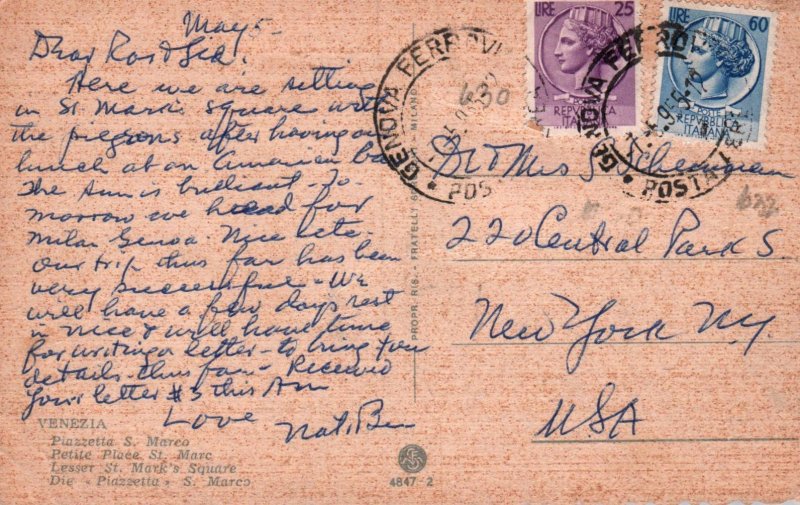 May 5
Dear Ro and Lea.
Here we are setting
in St Mark's square with
the pigeons after having our
lunch at an American bar
The sun is brilliant - To-
morrow we head for
Milan Genoa - Nice etc -
Our trip thus far has been
very successful - We
will have a few days rest
in Nice & will have time
for writing a letter - to bring you
details thus far - Received
your letter #3 this AM
Love
Nat & Ben
VENEZIA
Piazzetta S. Marco
Petite Place St. Marc
Lesser St. Mark's Square
Die « Piazzetta » S. Marco
4847 - 2
PROPR. RIS. - FRATELLI
MILANO
LIRE 25
POSTE
REPVBBLICA
ITALIANA
LIRE 60
POSTE
REPVBBLICA
ITALIANA
GENOVA FERROVIA
POSTA
GENOVA FERROVIA
POSTA
630
Dr & Mrs S
622
220 Central Park S.
New York NY.
USA